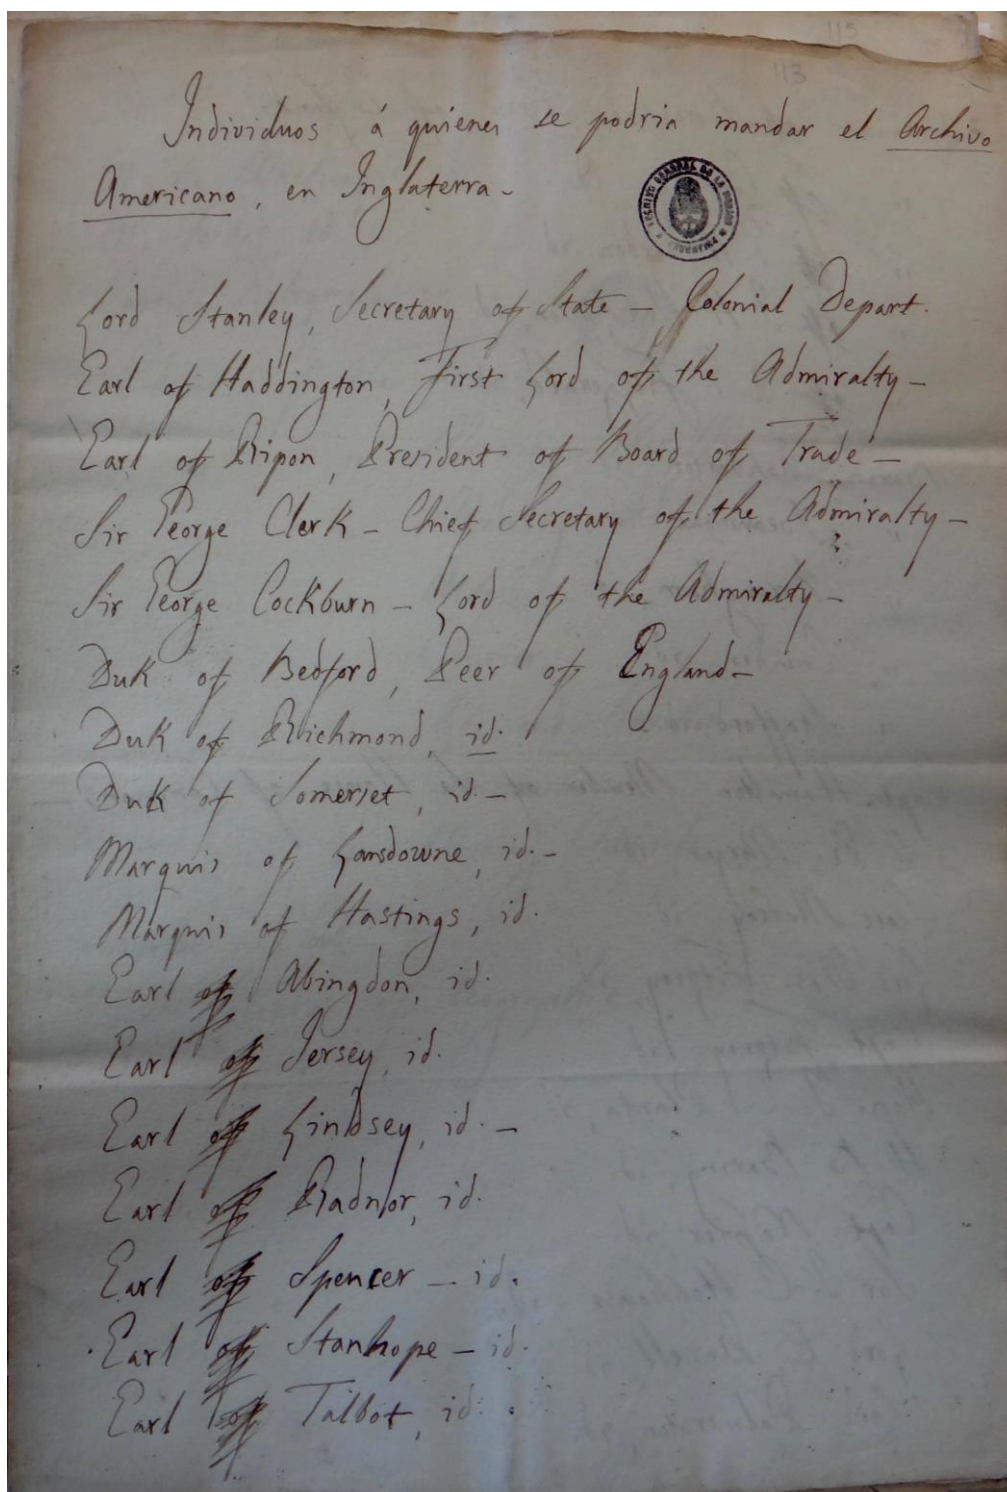 115
113
Individuos á quienes se podria mandar el Archivo
Americano, en Inglaterra -
ARCHIVO GENERAL DE LA NACION ARGENTINA
Lord Stanley, Secretary of State - Colonial Depart.
Earl of Haddington, First Lord of the Admiralty -
Earl of Ripon, President of Board of Trade -
Sir George Clerk - Chief Secretary of the Admiralty -
Sir George Cockburn - Lord of the Admiralty -
Duk of Bedford, Peer of England -
Duk of Richmond, id.
Duk of Somerset, id. -
Marquis of Lansdowne, id. -
Marquis of Hastings, id.
Earl of Abingdon, id.
Earl of Jersey, id.
Earl of Lindsey, id. -
Earl of Radnor, id.
Earl of Spencer - id.
Earl of Stanhope - id.
Earl of Talbot, id.